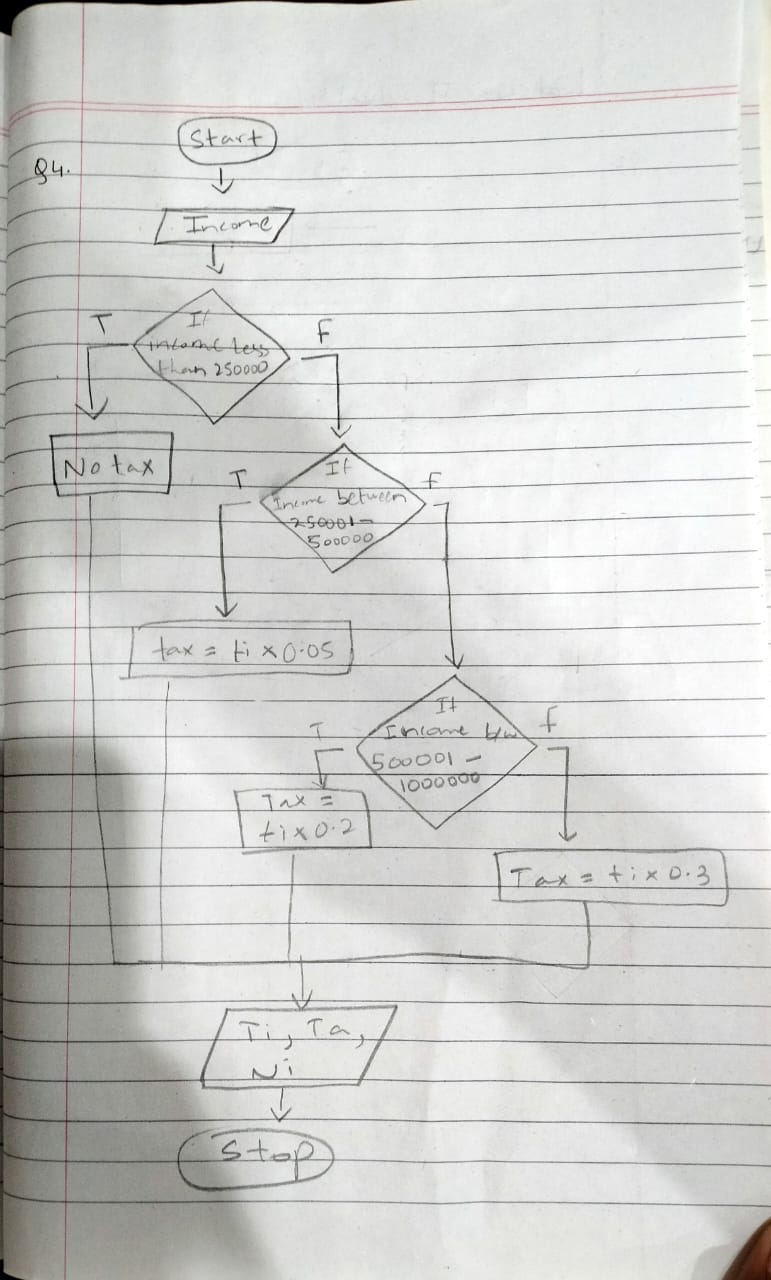 Start
Q4.
Income
T
If
F
income less
than 250000
No tax
T
If
F
Income between
250001 -
500000
tax = ti × 0.05
If
T
Income b/w
F
500001 -
1000000
Tax =
ti × 0.2
Tax = ti × 0.3
Ti, Ta,
Ni
Stop